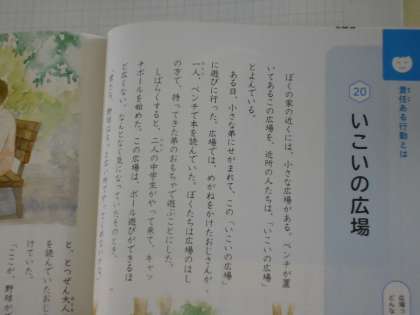 責任ある行動とは
20 いこいの広場
ぼくの家の近くには、小さな広場がある。ベンチが置
いてあるこの広場を、近所の人たちは、「いこいの広場」
とよんでいる。
ある日、小さな弟にせがまれて、この「いこいの広場」
に遊びに行った。広場では、めがねをかけたおじさんが、
一人、ベンチで本を読んでいた。ぼくたちは広場のはし
の方で、持ってきた弟のおもちゃで遊ぶことにした。
しばらくすると、二人の中学生がやって来て、キャッ
チボールを始めた。この広場は、ボール遊びができるほ
ど広くない。なんとなく気になっていたそのとき、
と、とつぜん大人
を読んでいたおじ
けていた。
「ここが、野球が
広場っ
どんな